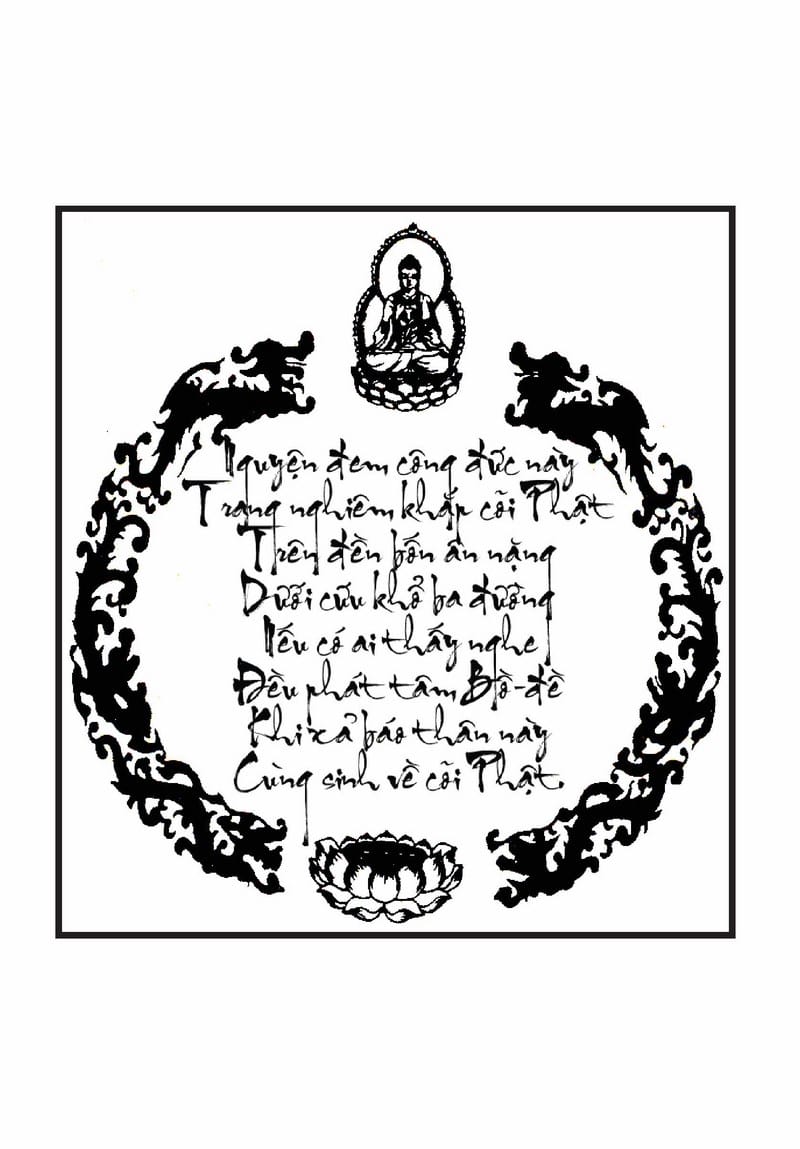 Nguyện đem công đức này
Trang nghiêm khắp cõi Phật
Trên đền bốn ân nặng
Dưới cứu khổ ba đường
Nếu có ai thấy nghe
Đều phát tâm Bồ-đề
Khi xả báo thân này
Cùng sinh về cõi Phật.